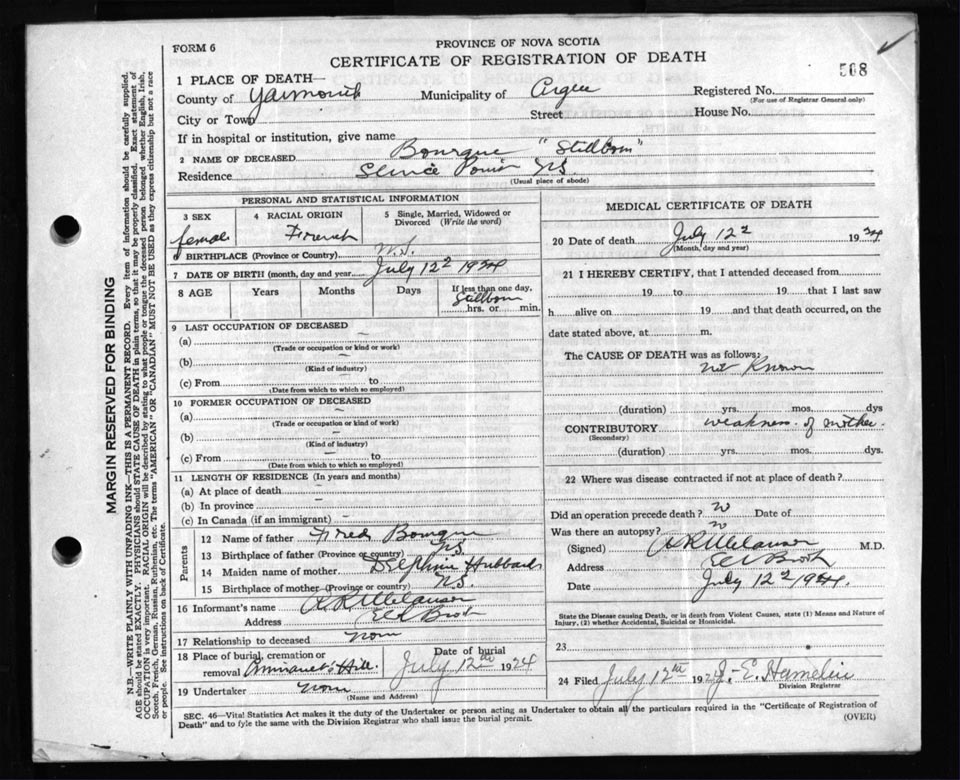 FORM 6
PROVINCE OF NOVA SCOTIA
CERTIFICATE OF REGISTRATION OF DEATH
508
1 PLACE OF DEATH—
County of Yarmouth Municipality of Argyle Registered No.
(For use of Registrar General only)
City or Town Street House No.
If in hospital or institution, give name
2 NAME OF DECEASED Bourque "Stillborn"
Residence Sluice Point N.S.
(Usual place of abode)
PERSONAL AND STATISTICAL INFORMATION
3 SEX female
4 RACIAL ORIGIN French
5 Single, Married, Widowed or Divorced (Write the word)
6 BIRTHPLACE (Province or Country) N.S.
7 DATE OF BIRTH (month, day and year) July 12
8 AGE Years Months Days If less than one day, Stillborn hrs. or min.
9 LAST OCCUPATION OF DECEASED
(a) –
(Trade or occupation or kind or work)
(b) –
(Kind of industry)
(c) From – to
(Date from which to which so employed)
10 FORMER OCCUPATION OF DECEASED
(a) –
(Trade or occupation or kind of work)
(b) –
(Kind of industry)
(c) From – to
(Date from which to which so employed)
11 LENGTH OF RESIDENCE (In years and months)
(a) At place of death –
(b) In province –
(c) In Canada (if an immigrant) –
Parents
12 Name of father Fred Bourque
13 Birthplace of father (Province or country) N.S.
14 Maiden name of mother Delphine Hubbard
15 Birthplace of mother (Province or country) N.S.
16 Informant's name A R Melanson
Address Eel Brook
17 Relationship to deceased None
18 Place of burial, cremation or removal Hill Date of burial July 12th 1924
19 Undertaker None
(Name and Address)
MEDICAL CERTIFICATE OF DEATH
20 Date of death July 12 1924
(Month, day and year)
21 I HEREBY CERTIFY, that I attended deceased from
19 to 19 that I last saw
h alive on 19 and that death occurred, on the
date stated above, at m.
The CAUSE OF DEATH was as follows:
not Known
(duration) yrs. mos. dys
CONTRIBUTORY weakness of mother.
(Secondary)
(duration) yrs. mos. dys.
22 Where was disease contracted if not at place of death?
Did an operation precede death? no Date of
Was there an autopsy? no
(Signed) A R Melanson M.D.
Address Eel Brook
Date July 12 1924.
State the Disease causing Death, or in death from Violent Causes, state (1) Means and Nature of
Injury, (2) whether Accidental, Suicidal or Homicidal.
23
24 Filed July 12th 1924 J. E. Hamelin
Division Registrar
SEC. 46—Vital Statistics Act makes it the duty of the Undertaker or person acting as Undertaker to obtain all the particulars required in the "Certificate of Registration of
Death" and to fyle the same with the Division Registrar who shall issue the burial permit.
(OVER)
MARGIN RESERVED FOR BINDING
N.B.—WRITE PLAINLY WITH UNFADING INK—THIS IS A PERMANENT RECORD. Every item of information should be carefully supplied.
AGE should be stated EXACTLY. PHYSICIANS should STATE CAUSE OF DEATH in plain terms, so that it may be properly classified. Exact statement of
OCCUPATION is very important. RACIAL ORIGIN will be described by stating to what people or tongue the deceased person belonged whether English, Irish,
Scotch, French, German, Russian, Ruthenian, etc. The terms "AMERICAN" OR "CANADIAN" MUST NOT BE USED as they express citizenship but not a race
or people. See instructions on back of Certificate.